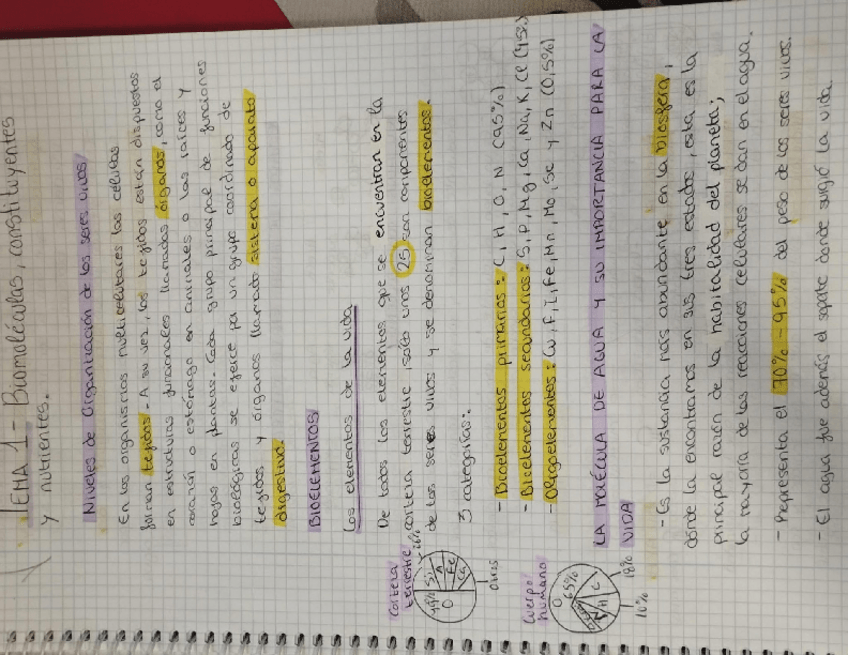 TEMA 1 - Biomoléculas, constituyentes
y nutrientes.
Niveles de Organización de los seres vivos
En los organismos multicelulares las células
forman tejidos - A su vez, los tejidos están dispuestos
en estructuras funcionales llamadas órganos, como el
corazón o estómago en animales o las raíces y
hojas en plantas. Cada grupo principal de funciones
biológicas se ejerce por un grupo coordinado de
tejidos y órganos llamado sistema o aparato
digestivo.
BIOELEMENTOS
Los elementos de la vida
De todos los elementos que se encuentran en la
corteza terrestre, solo unos 25 son componentes
de los seres vivos y se denominan bioelementos.
3 categorías:
- Bioelementos primarios: C, H, O, N (95%)
- Bioelementos secundarios: S, P, Mg, Ca, Na, K, Cl (4,5%)
- Oligoelementos: Cu, F, I, Fe, Mn, Mo, Se y Zn (0,5%)
Corteza
terrestre
49%
26%
O
Si
A
Fe
Ca
otros
Cuerpo
humano
O
65%
C
H
N
18%
10%
LA MOLÉCULA DE AGUA Y SU IMPORTANCIA PARA LA
VIDA
- Es la sustancia más abundante en la biosfera,
dónde la encontramos en sus tres estados, esta es la
principal razón de la habitalidad del planeta;
la mayoría de las reacciones celulares se dan en el agua.
- Representa el 70% - 95% del peso de los seres vivos.
- El agua fue además el soporte donde surgió la vida.